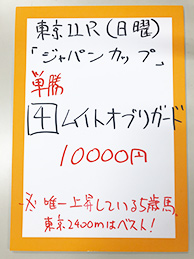 東京11R(日曜)
「ジャパンカップ」
単勝
4 ムイトオブリガード
10000円
※唯一上昇している5歳馬。
東京2400mはベスト!